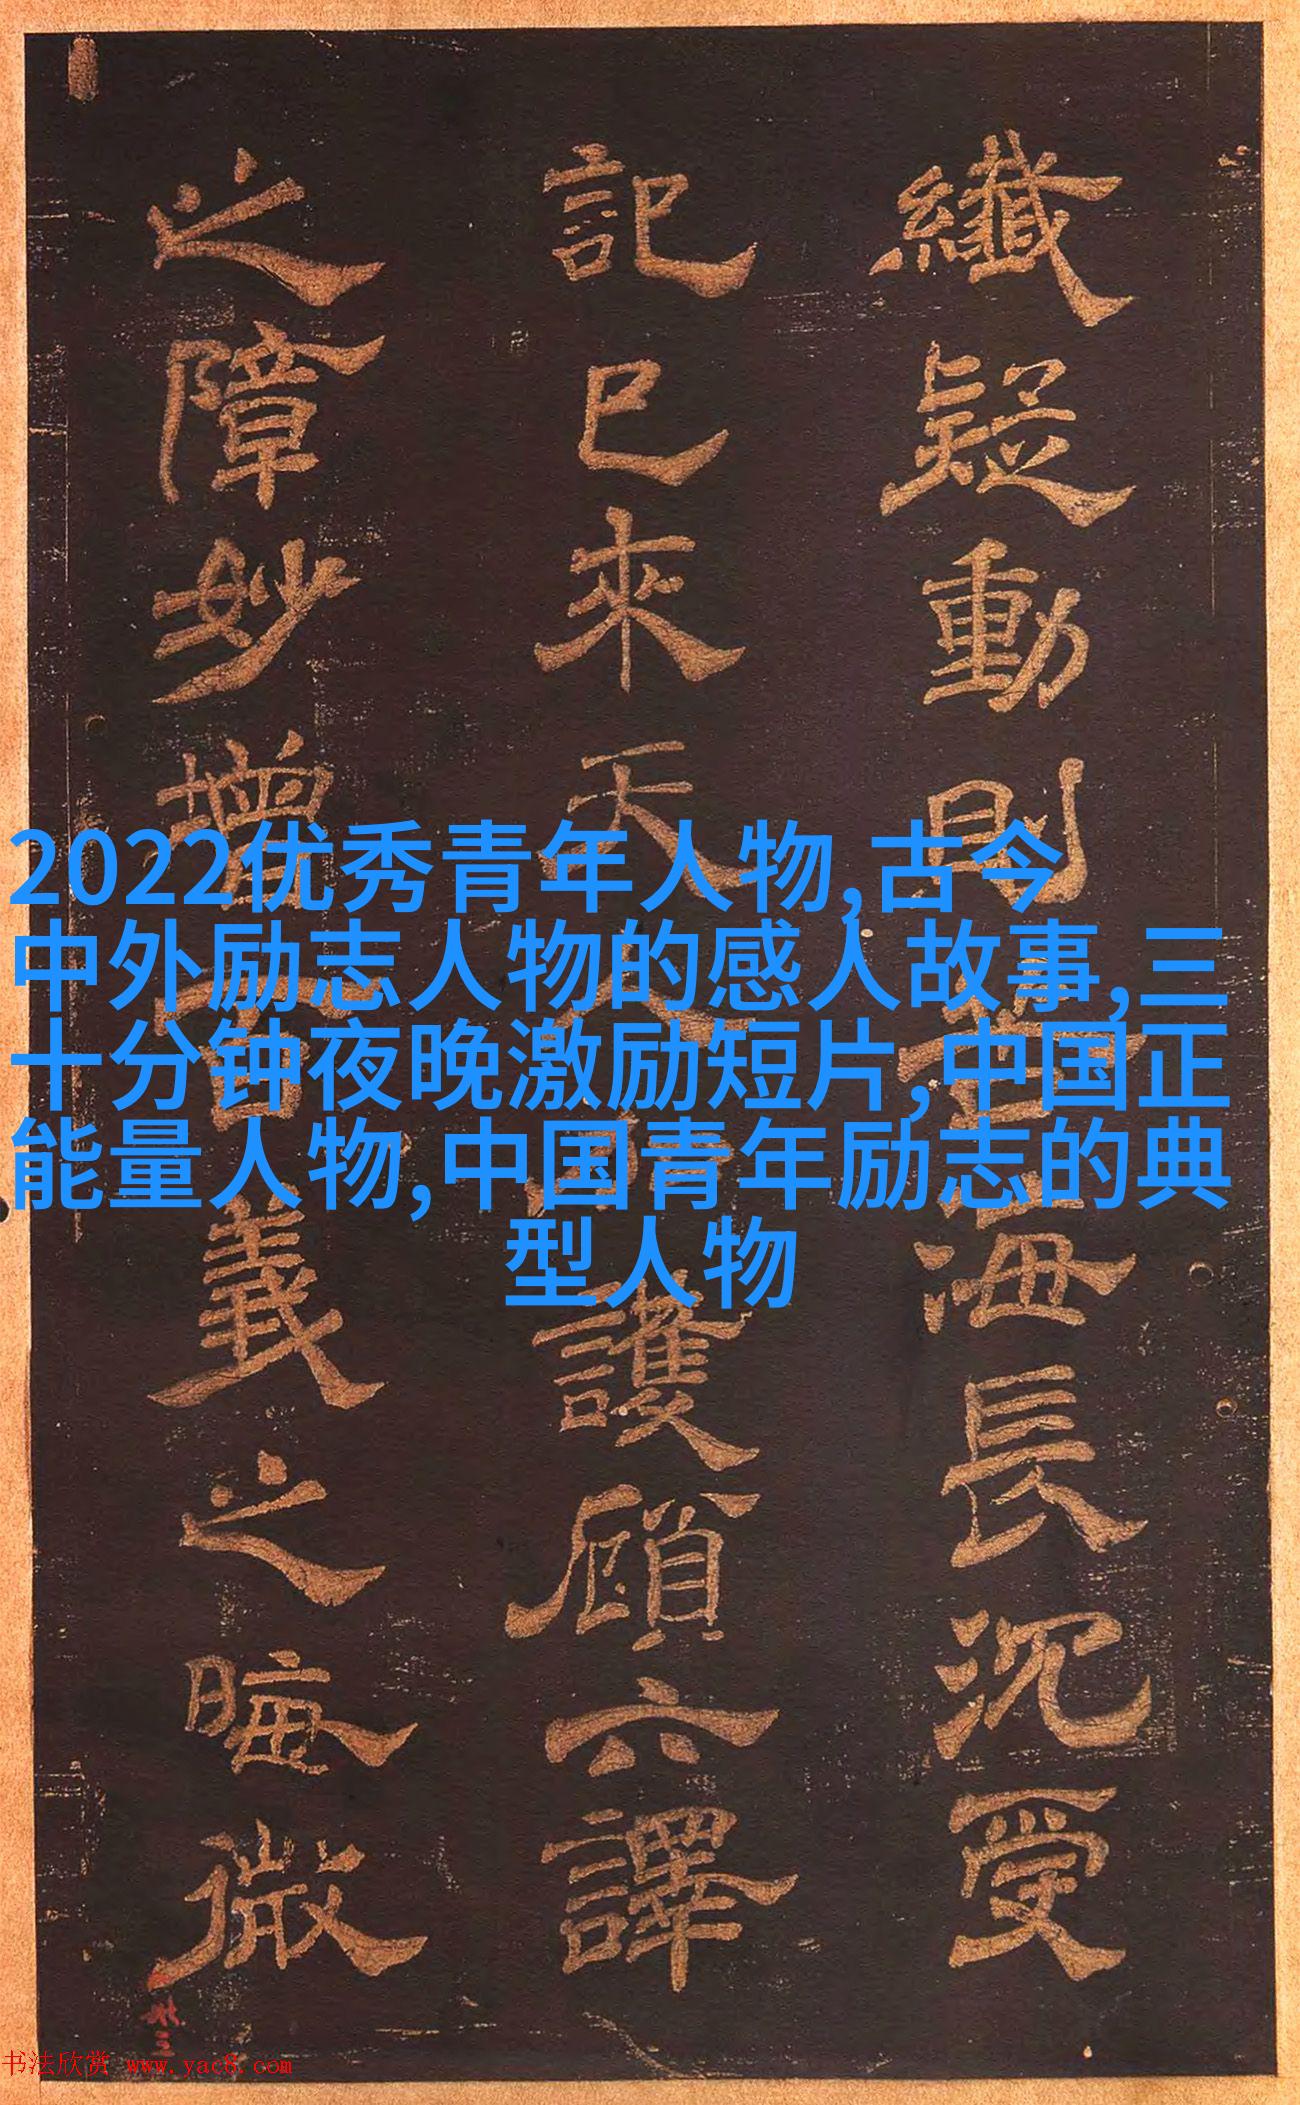 2022优秀青年人物,古今
中外励志人物的感人故事,三
十分钟夜晚激励短片,中国正
能量人物,中国青年励志的典
型人物
纖疑動則海長沉受
記已來天護顧六譯
之障妙增義之晦微
书法欣赏 www.yac8.com